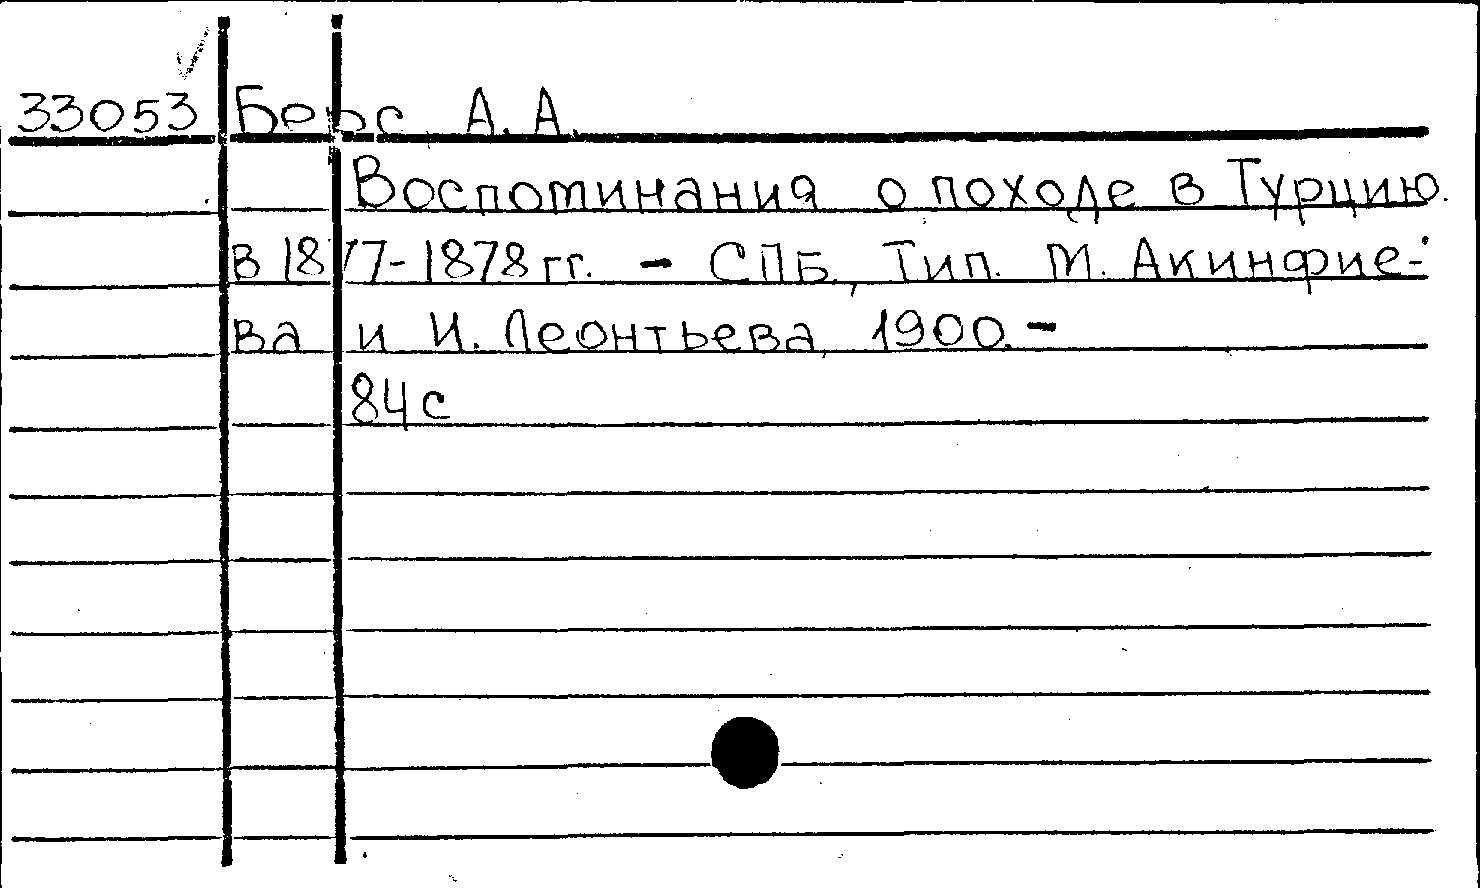 33053 Берс А. А.
Воспоминания о походе в Турцию
в 1877-1878 гг. - СПБ, Тип. М. Акинфие-
ва и И. Леонтьева, 1900. -
84 с